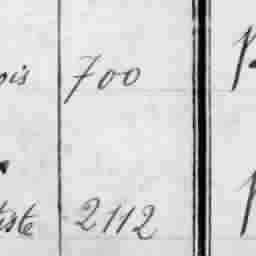 ois 700
iste 2112